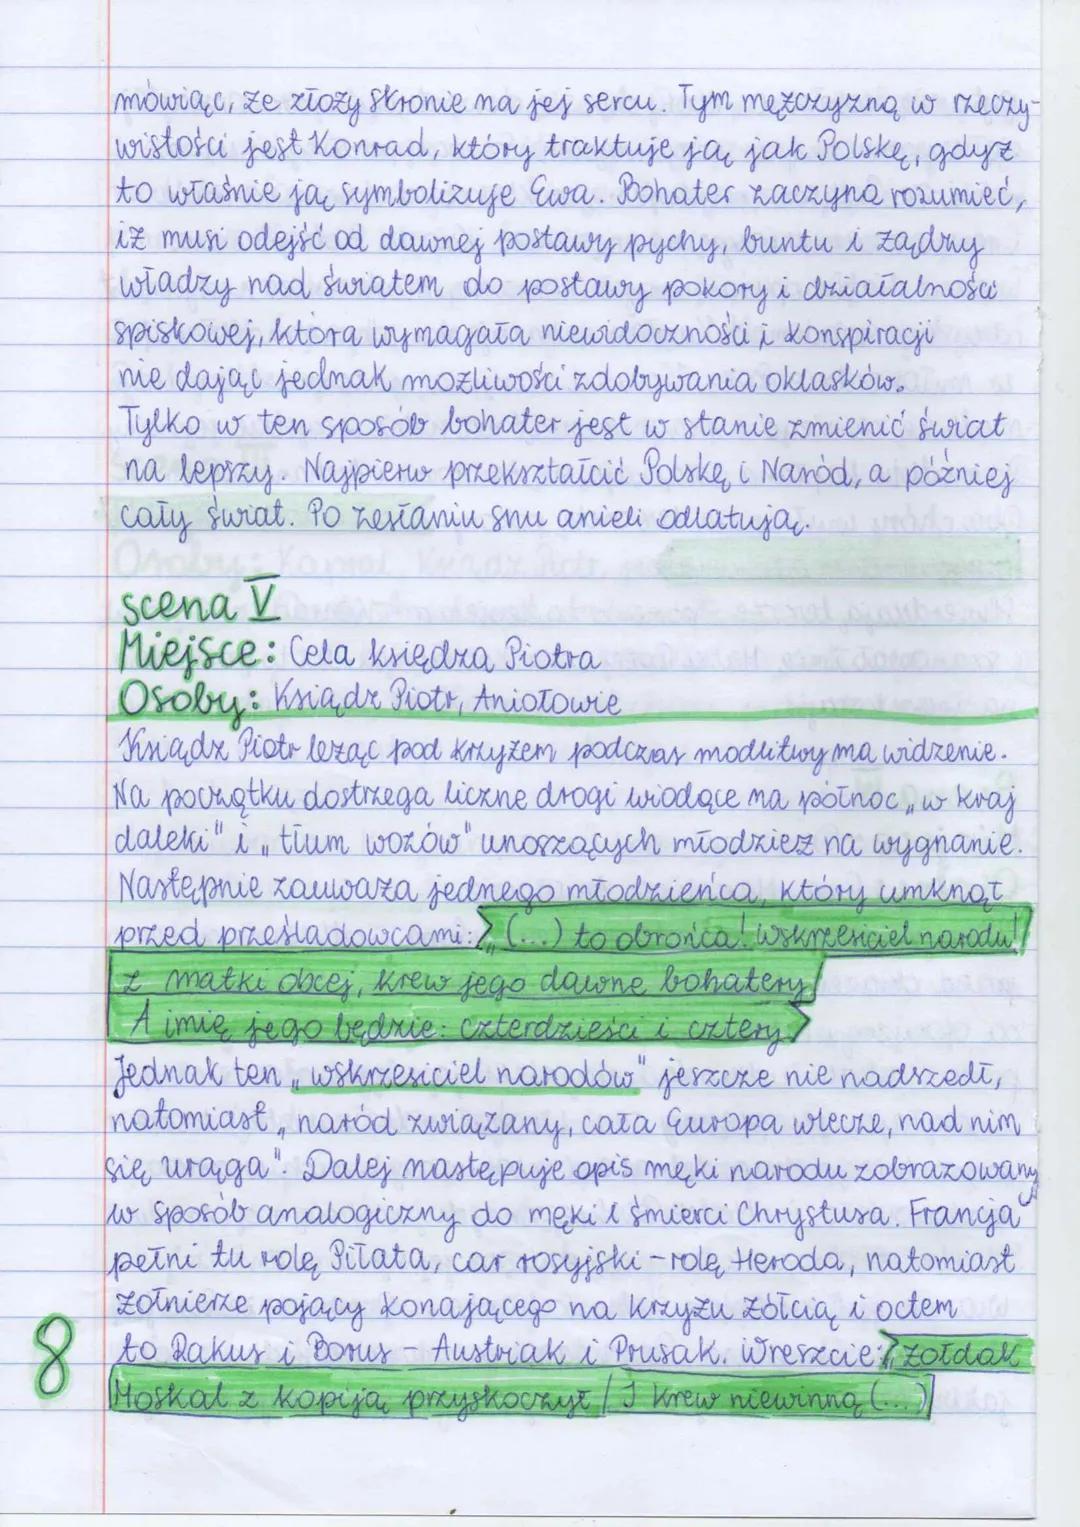 mówiąc, że złoży skronie na jej sercu. Tym mężczyzną w rzeczy-
wistości jest Konrad, który traktuje ją jak Polskę, gdyż
to właśnie ją symbolizuje Ewa. Bohater zaczyna rozumieć,
iż musi odejść od dawnej postawy pychy, buntu i żądzy
władzy nad światem do postawy pokory i działalności
spiskowej, która wymagała niewidoczności i konspiracji
nie dając jednak możliwości zdobywania oklasków.
Tylko w ten sposób bohater jest w stanie zmienić świat
na lepszy. Najpierw przekształcić Polskę i Naród, a później
cały świat. Po zesłaniu snu anieli odlatują.
scena V
Miejsce: Cela księdza Piotra
Osoby: Ksiądz Piotr, Aniołowie
Ksiądz Piotr leżąc pod krzyżem podczas modlitwy ma widzenie.
Na początku dostrzega liczne drogi wiodące na północ „w kraj
daleki" i „tłum wozów" unoszących młodzież na wygnanie.
Następnie zauważa jednego młodzieńca, który umknął
przed prześladowcami: „(...) to obrońca! wskrzesiciel narodu!
z matki obcej, krew jego dawne bohatery/
A imię jego będzie: czterdzieści i cztery."
Jednak ten „wskrzesiciel narodów" jeszcze nie nadszedł,
natomiast „naród związany, cała Europa wlecze, nad nim
się urąga". Dalej następuje opis męki narodu zobrazowany
w sposób analogiczny do męki i śmierci Chrystusa. Francja
pełni tu rolę Piłata, car rosyjski - rolę Heroda, natomiast
żołnierze pojący konającego na krzyżu żółcią i octem
to Rakus i Borus - Austriak i Prusak. Wreszcie: „żołdak
Moskal z kopiją przyskoczył / I krew niewinną (...)
8